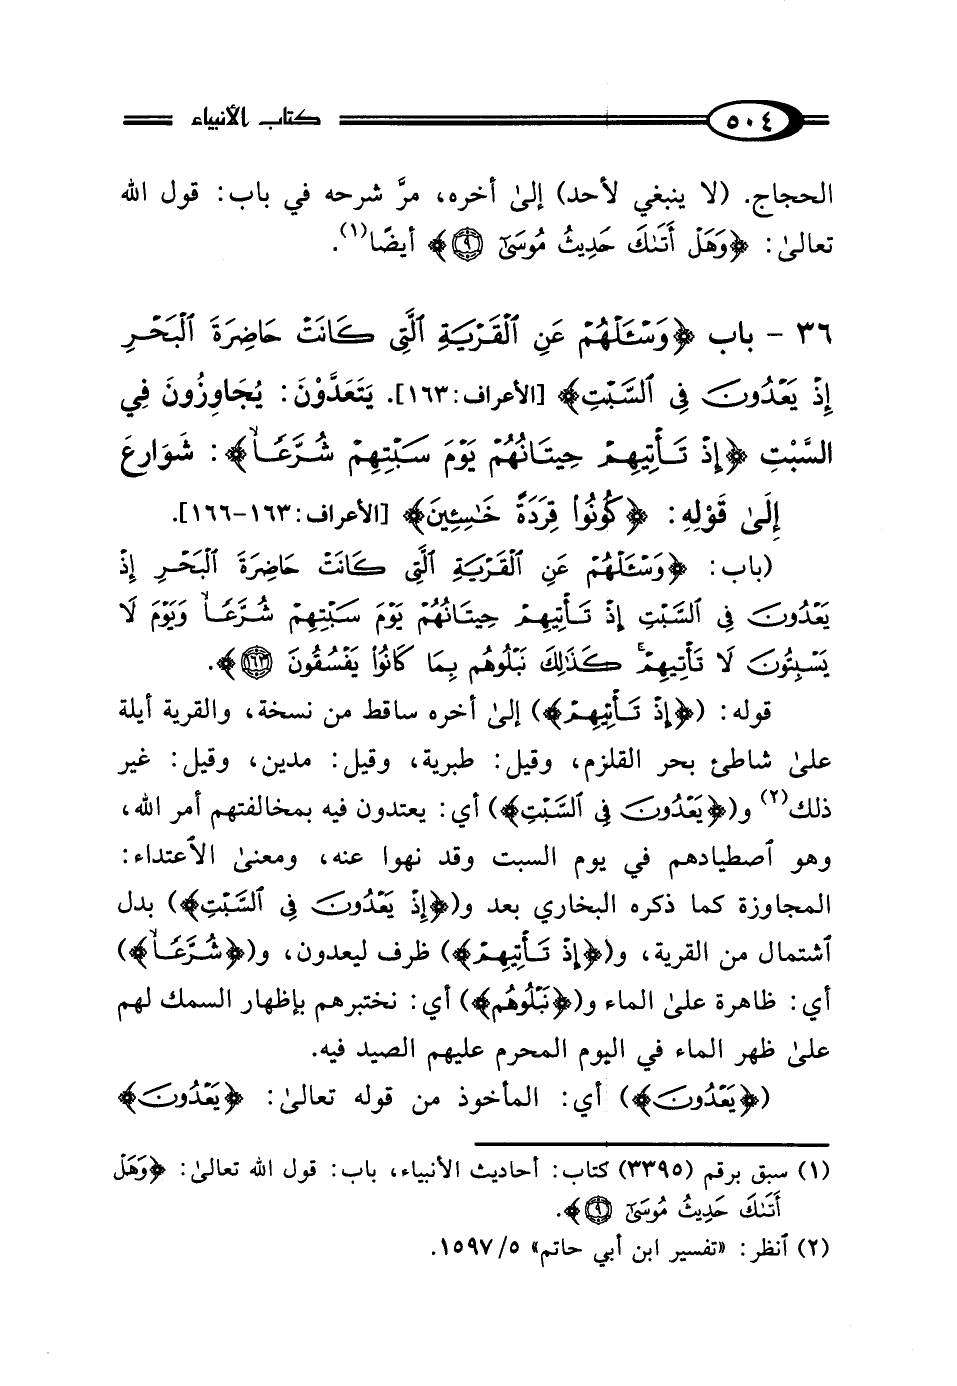 ٥٠٤ كتاب الأنبياء
الحجاج. (لا ينبغي لأحد) إلىٰ أخره، مرَّ شرحه في باب: قول الله
تعالىٰ: ﴿وَهَلْ أَتَىٰكَ حَدِيثُ مُوسَىٰٓ ۝٩﴾ أيضًا(١).
٣٦ - باب ﴿وَسْـَٔلْهُمْ عَنِ ٱلْقَرْيَةِ ٱلَّتِى كَانَتْ حَاضِرَةَ ٱلْبَحْرِ
إِذْ يَعْدُونَ فِى ٱلسَّبْتِ﴾ [الأعراف: ١٦٣]. يَتَعَدَّوْنَ: يُجَاوِزُونَ فِي
السَّبْتِ ﴿إِذْ تَأْتِيهِمْ حِيتَانُهُمْ يَوْمَ سَبْتِهِمْ شُرَّعًا﴾: شَوَارِعَ
إِلَىٰ قَوْلِهِ: ﴿كُونُوا۟ قِرَدَةً خَـٰسِـِٔينَ﴾ [الأعراف: ١٦٣-١٦٦].
(باب: ﴿وَسْـَٔلْهُمْ عَنِ ٱلْقَرْيَةِ ٱلَّتِى كَانَتْ حَاضِرَةَ ٱلْبَحْرِ إِذْ
يَعْدُونَ فِى ٱلسَّبْتِ إِذْ تَأْتِيهِمْ حِيتَانُهُمْ يَوْمَ سَبْتِهِمْ شُرَّعًا وَيَوْمَ لَا
يَسْبِتُونَ لَا تَأْتِيهِمْ ۚ كَذَٰلِكَ نَبْلُوهُم بِمَا كَانُوا۟ يَفْسُقُونَ ۝١٦٣﴾.
قوله: (﴿إِذْ تَأْتِيهِمْ﴾) إلىٰ أخره ساقط من نسخة، والقرية أيلة
علىٰ شاطئ بحر القلزم، وقيل: طبرية، وقيل: مدين، وقيل: غير
ذلك(٢) و(﴿يَعْدُونَ فِى ٱلسَّبْتِ﴾) أي: يعتدون فيه بمخالفتهم أمر الله،
وهو ٱصطيادهم في يوم السبت وقد نهوا عنه، ومعنىٰ الاٌعتداء:
المجاوزة كما ذكره البخاري بعد و(﴿إِذْ يَعْدُونَ فِى ٱلسَّبْتِ﴾) بدل
ٱشتمال من القرية، و(﴿إِذْ تَأْتِيهِمْ﴾) ظرف ليعدون، و(﴿شُرَّعًا﴾)
أي: ظاهرة علىٰ الماء و(﴿نَبْلُوهُم﴾) أي: نختبرهم بإظهار السمك لهم
علىٰ ظهر الماء في اليوم المحرم عليهم الصيد فيه.
(﴿يَعْدُونَ﴾) أي: المأخوذ من قوله تعالىٰ: ﴿يَعْدُونَ﴾
(١) سبق برقم (٣٣٩٥) كتاب: أحاديث الأنبياء، باب: قول الله تعالىٰ: ﴿وَهَلْ
أَتَىٰكَ حَدِيثُ مُوسَىٰٓ ۝٩﴾.
(٢) ٱنظر: «تفسير ابن أبي حاتم» ٥/ ١٥٩٧.